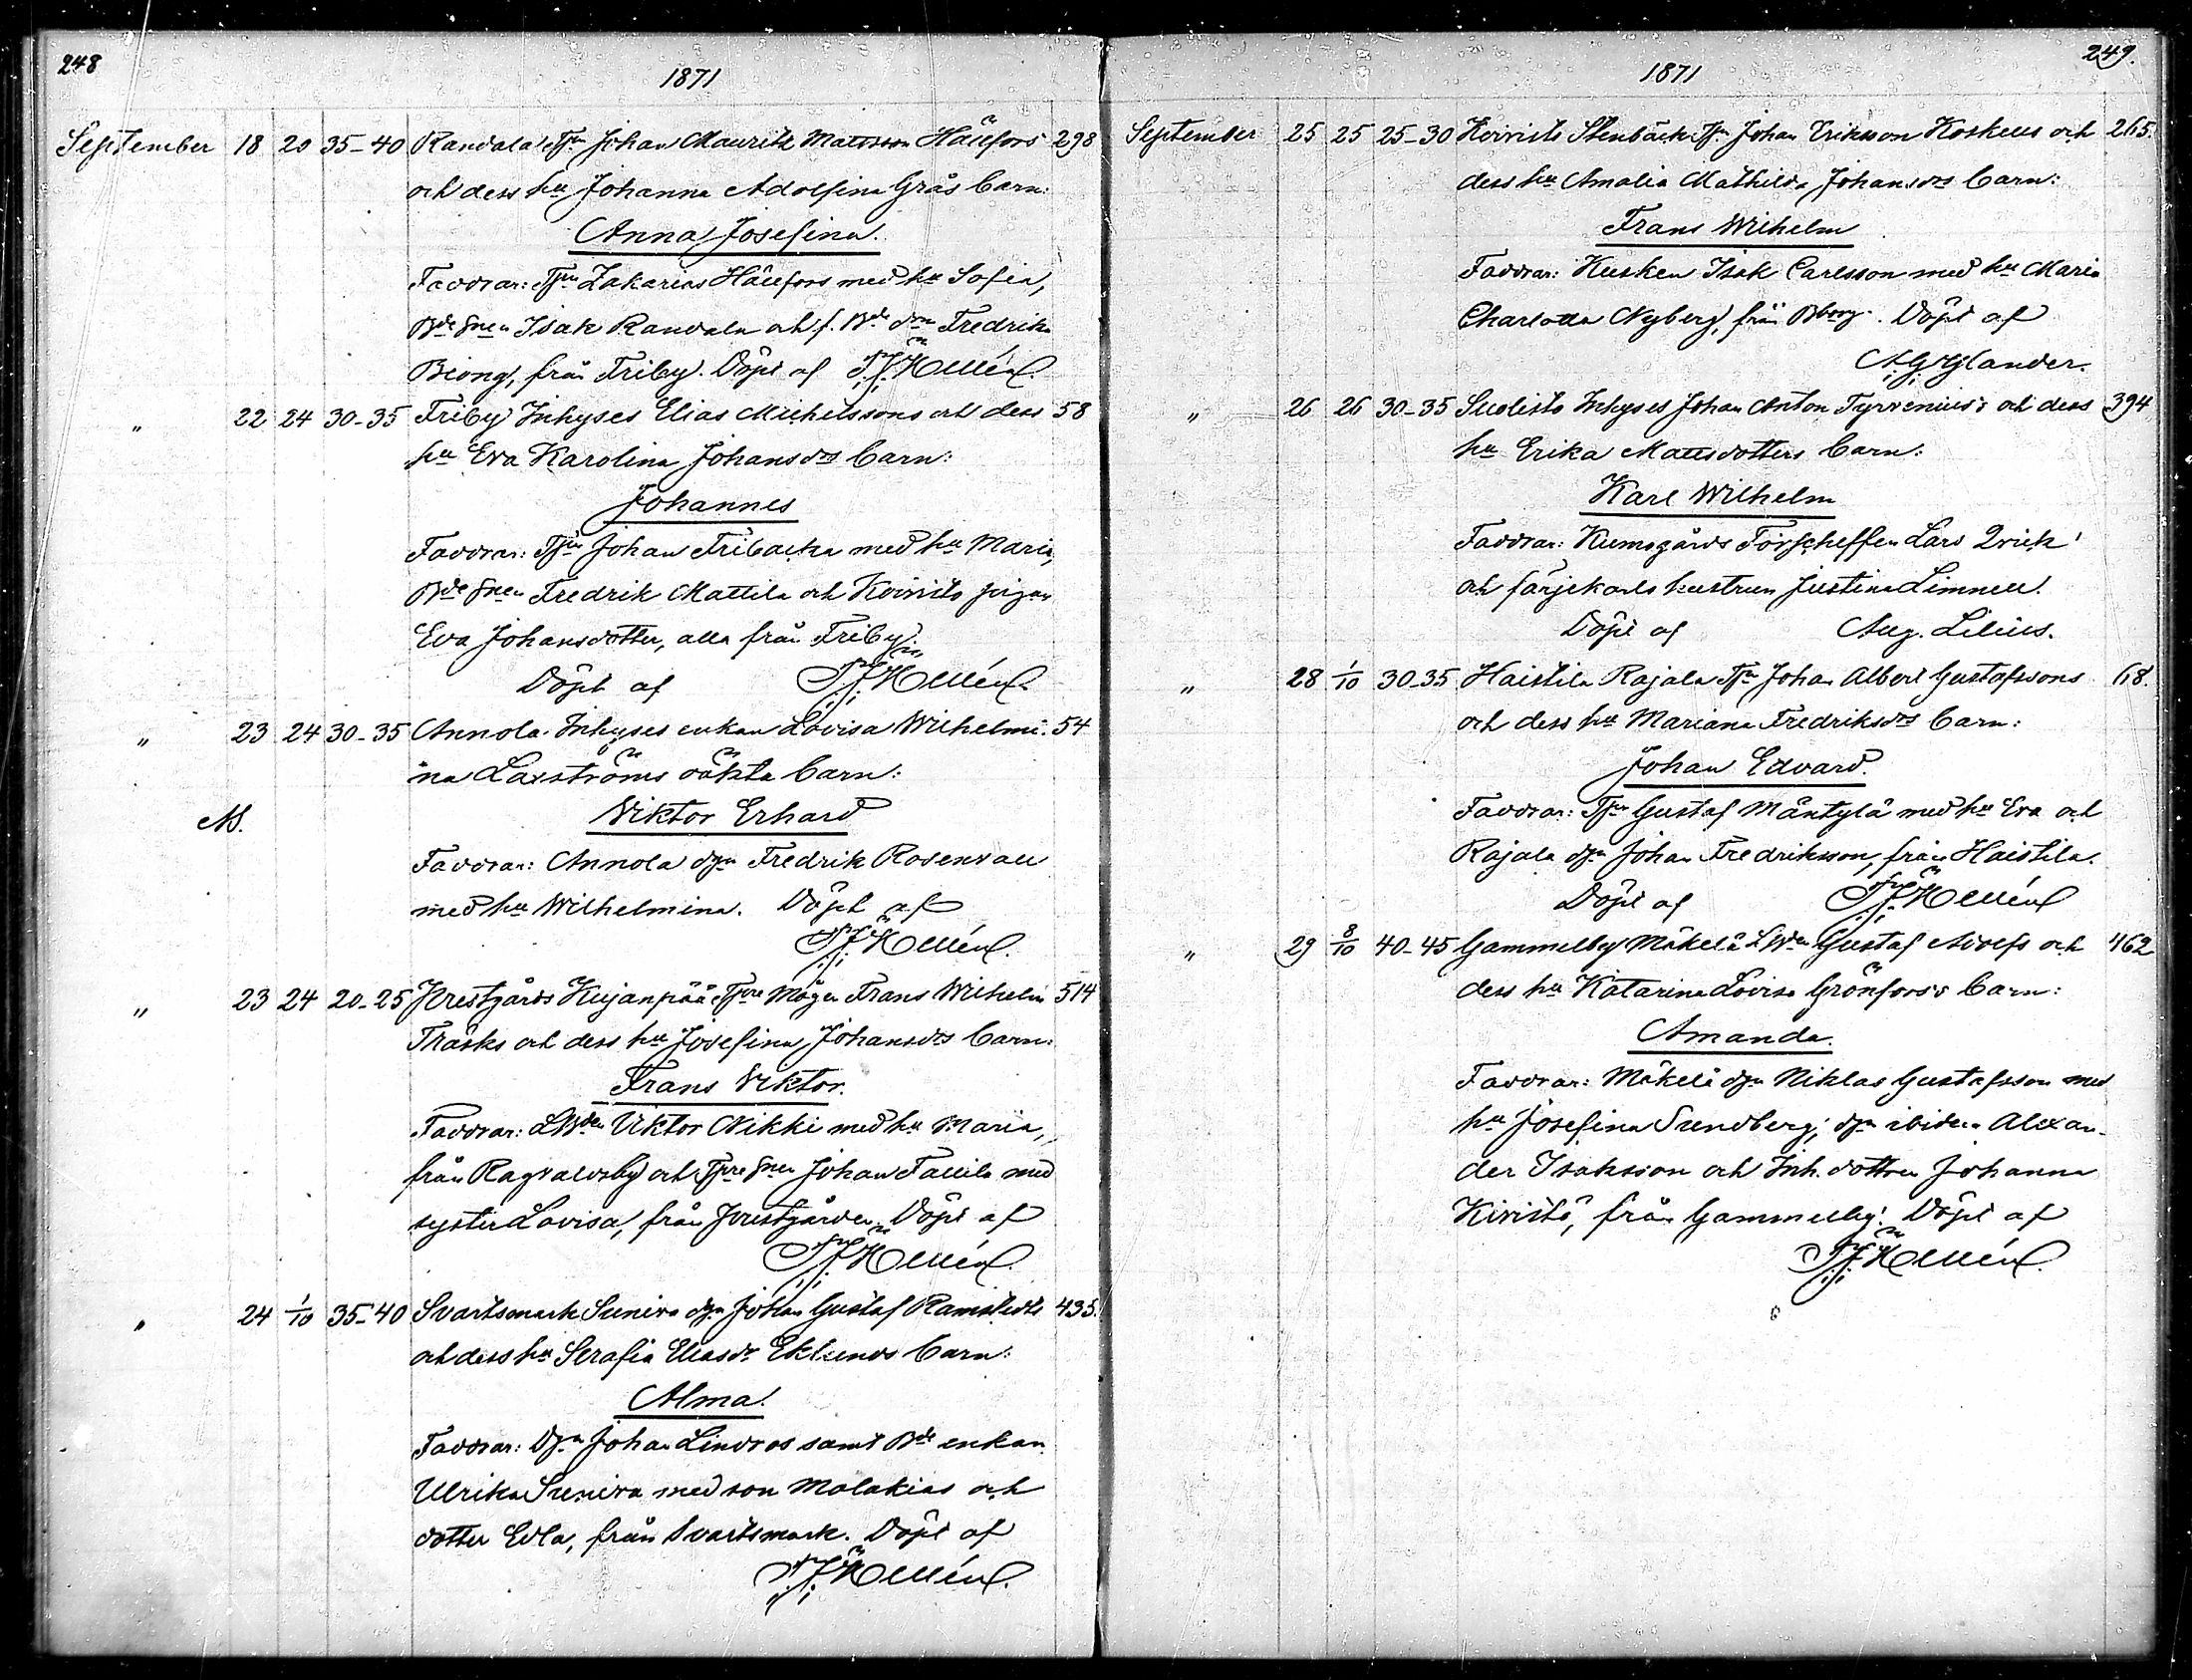 248
1871
September 18 20 35-40 Randala Tjn Johan Maurits Mattsson Hällfors 298
och dess hu Johanna Adolfina Grås barn:
Anna Josefina.
Faddrar: Tjn Zakarias Hällfors med hu Sofia,
Bde snen Isak Randala och f. Bde drn Fredrika
Björng, från Friby. Döpt af F.J. Hellén.
" 22 24 30-35 Friby Inhyses Elias Michelssons och dess 58
hu Eva Karolina Johansdrs barn:
Johannes
Faddrar: Tjn Johan Fribacka med hu Maria,
Bde snen Fredrik Mattila och Koivisto pigan
Eva Johansdotter, alla från Friby.
Döpt af F.J. Hellén.
" 23 24 30-35 Annola Inhyses enkan Lovisa Wilhelmi- 54
na Laxströms oäkta barn:
Viktor Erhard
Faddrar: Annola dgn Fredrik Rosenvall
med hu Wilhelmina. Döpt af
F.J. Hellén.
" 23 24 20-25 Prestgårds Kujanpää Tjre Mågen Frans Wilhelm 514
Träsks och dess hu Josefina Johansdrs barn:
Frans Viktor.
Faddrar: LBden Viktor Nikki med hu Maria,
från Ragvaldsby och Tjre snen Johan Tallila med
syster Lovisa, från Prestgården. Döpt af
F.J. Hellén.
" 24 1/10 35-40 Svartsmark Suniva dgn Johan Gustaf Ramstedts 435.
och dess hu Serafia Eliasdr Eklunds barn:
Alma.
Faddrar: Dgn Johan Lindros samt Bde enkan
Ulrika Suniva med son Malakias och
dotter Edla, från Svartsmark. Döpt af
F.J. Hellén.
249.
1871
September 25 25 25-30 Koivisto Stenbäck Tjn Johan Eriksson Koskells och 265.
dess hu Amalia Mathilda Johansdrs barn:
Frans Wilhelm
Faddrar: Kusken Isak Carlsson med hu Maria
Charlotta Nyberg, från Bborg. Döpt af
A.G. Yglander.
" 26 26 30-35 Suolisto Inhyses Johan Anton Tyrvenius's och dess 394
hu Erika Mattsdotters barn:
Karl Wilhelm
Faddrar: Kumogårds Torp Lars Qvick
och färjekarls hustrun Justina Limnell.
Döpt af Aug. Lilius.
" 28 1/10 30-35 Haistila Rajala Tjn Johan Albert Gustafssons 618.
och dess hu Mariana Fredriksdrs barn:
Johan Edvard.
Faddrar: Tjn Gustaf Mäntylä med hu Eva och
Rajala dgn Johan Fredriksson, från Haistila.
Döpt af F.J. Hellén
" 29 8/10 40-45 Gammelby Mäkelä LBden Gustaf Adolfs och 462
dess hu Katarina Lovisa Grönfors's barn:
Amanda.
Faddrar: Mäkelä dgn Niklas Gustafsson med
hu Josefina Sundberg; dgn ibidem Alexan-
der Isaksson och Inh. dottren Johanna
Kivistö, från Gammelby. Döpt af
F.J. Hellén.